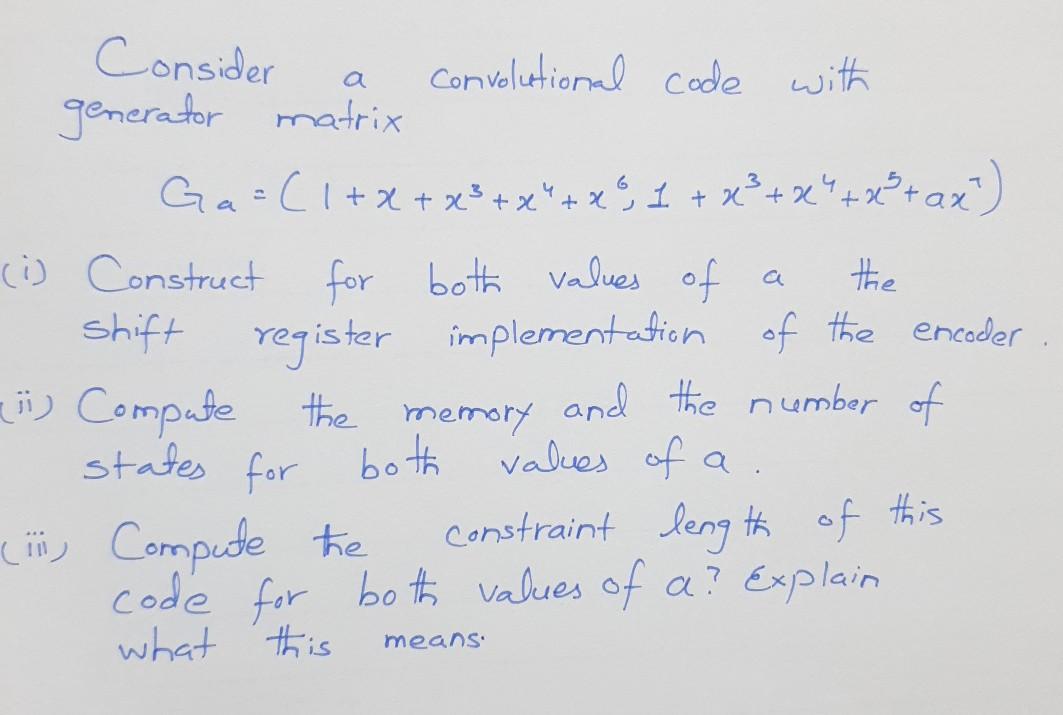 Consider a convolutional code with
generator matrix
Ga = (1 + x + x³ + x⁴ + x⁶, 1 + x³ + x⁴ + x⁵ + ax⁷)
(i) Construct for both values of a the
shift register implementation of the encoder.
(ii) Compute the memory and the number of
states for both values of a.
(iii) Compute the constraint length of this
code for both values of a? Explain
what this means.